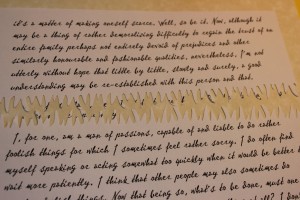 it's a matter of making oneself scarce. Well, so be it. Now, although it
may be a thing of rather demoralising difficulty to regain the trust of an
entire family perhaps not entirely devoid of prejudices and other
similarly honourable and fashionable qualities, nevertheless. I'm not
utterly without hope that little by little, slowly and surely, a good
understanding may be re-established with this person and that.
I, for one, am a man of passions, capable of and liable to do rather
foolish things for which I sometimes feel rather sorry. I do often find
myself speaking or acting somewhat too quickly when it would be better to
wait more patiently. I think that other people may also sometimes do
things. Now that being so, what's to be done, must one
I do